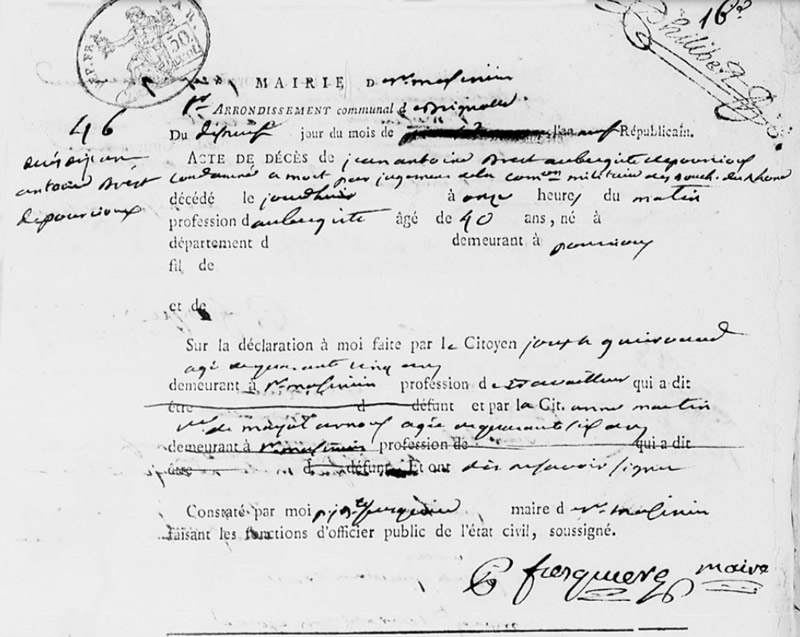 16
Philibert
REP. FRA
50
MAIRIE D St maximin
1er ARRONDISSEMENT communal d Brignolles
46
Du jour du mois de l'an neuf Républicain.
ACTE DE DÉCÈS de jean antoine Brest aubergiste de pourrioux
antoine Brest
de pourcioux
condamné a mort par jugement de la comon militaire des bouch. du rhone
décédé le jourdhuy à onze heures du matin
profession d aubergiste âgé de 40 ans, né à
département d demeurant à pourrioux
fil de
et de
Sur la déclaration à moi faite par le Citoyen joseph
agé de quarante cinq ans
demeurant à St maximin profession de travailleur qui a dit
être d défunt et par la Cit. anne martin
agée de quarante six ans
demeurant à St maximin profession de qui a dit
être d défunt. Et ont dit ne scavoir signer
Constaté par moi maire d St maximin
faisant les fonctions d'officier public de l'état civil, soussigné.
maire